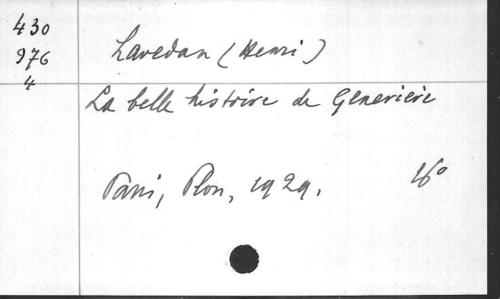 430
976
4
Lavedan (Henri)
La belle histoire de Geneviève
Paris, Plon, 1929.
16°